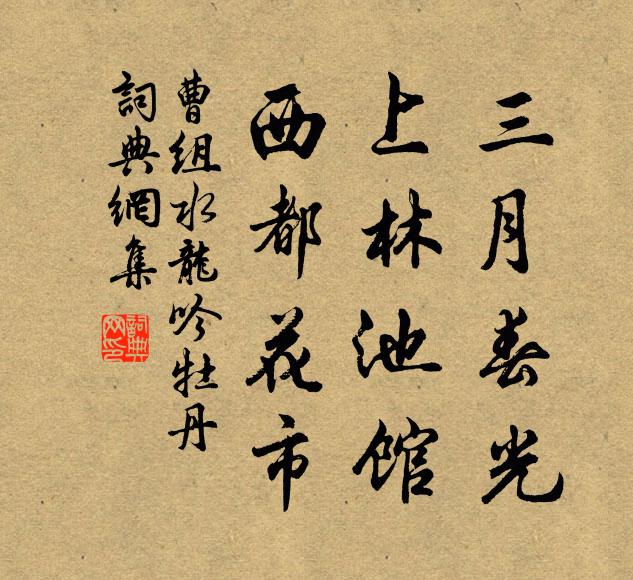 三月春光
上林池館
西都花市
曹組水龍吟牡丹
詞典網集
詞典
网印